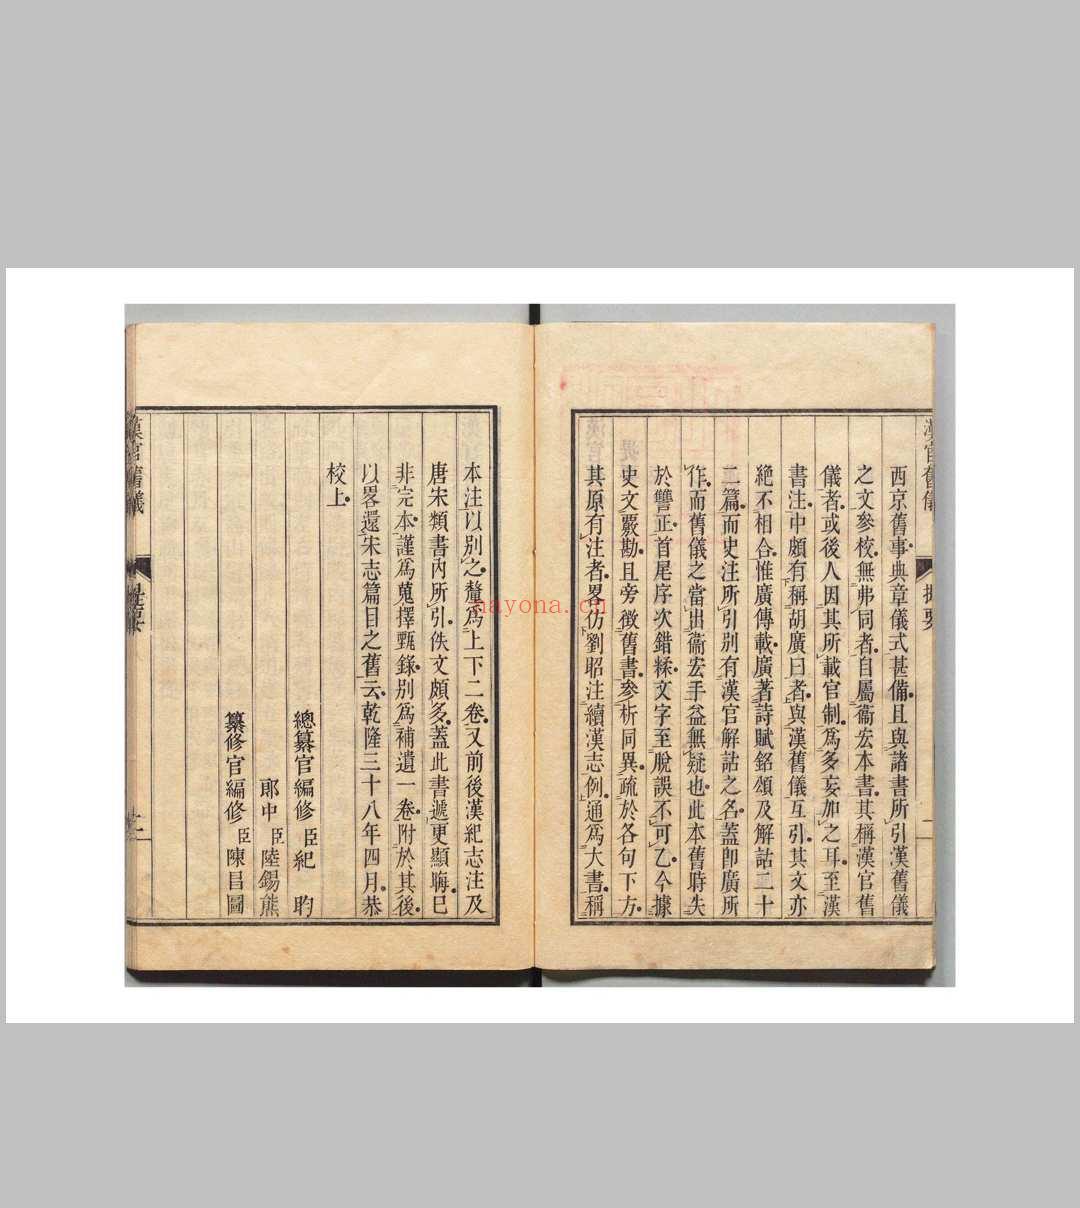 漢官舊儀 提要 一
西京舊事典章儀式甚備且與諸書所引漢舊儀
之文參校無弗同者自屬衞宏本書其稱漢官舊
儀者或後人因其所載官制爲多妄加之耳至漢
書注中頗有稱胡廣曰者與漢舊儀互引其文亦
絶不相合惟廣傳載廣著詩賦銘頌及解詁二十
二篇而史注所引別有漢官解詁之名蓋卽廣所
作而舊儀之當出衞宏手益無疑也此本舊時失
於讐正首尾序次錯糅文字至脫誤不可乙今據
史文覈勘且旁徵舊書參析同異疏於各句下方
其原有注者畧仿劉昭注續漢志例通爲大書稱
本注以別之釐爲上下二卷又前後漢紀志注及
唐宋類書內所引佚文頗多蓋此書遞更顯晦已
非完本謹爲蒐擇甄錄別爲補遺一卷附於其後
以畧還宋志篇目之舊云乾隆三十八年四月恭
校上
總纂官編修臣紀昀
郞中臣陸錫熊
纂修官編修臣陳昌圖
漢官舊儀 提要
nayona.cn